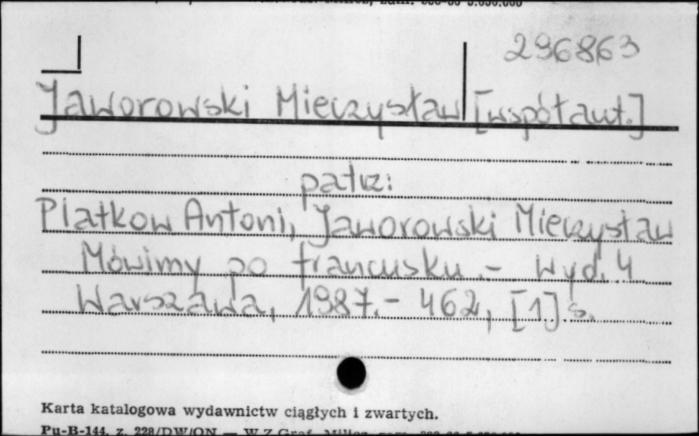 296863
Jaworowski Mieczysław [współaut.]
patrz:
Platkow Antoni, Jaworowski Mieczysław
Mówimy po francusku.- Wyd. 4
Warszawa, 1987.- 462, [1] s.
Karta katalogowa wydawnictw ciągłych i zwartych.
Pu-B-144, z. 228/DW/ON — W.Z.Graf.